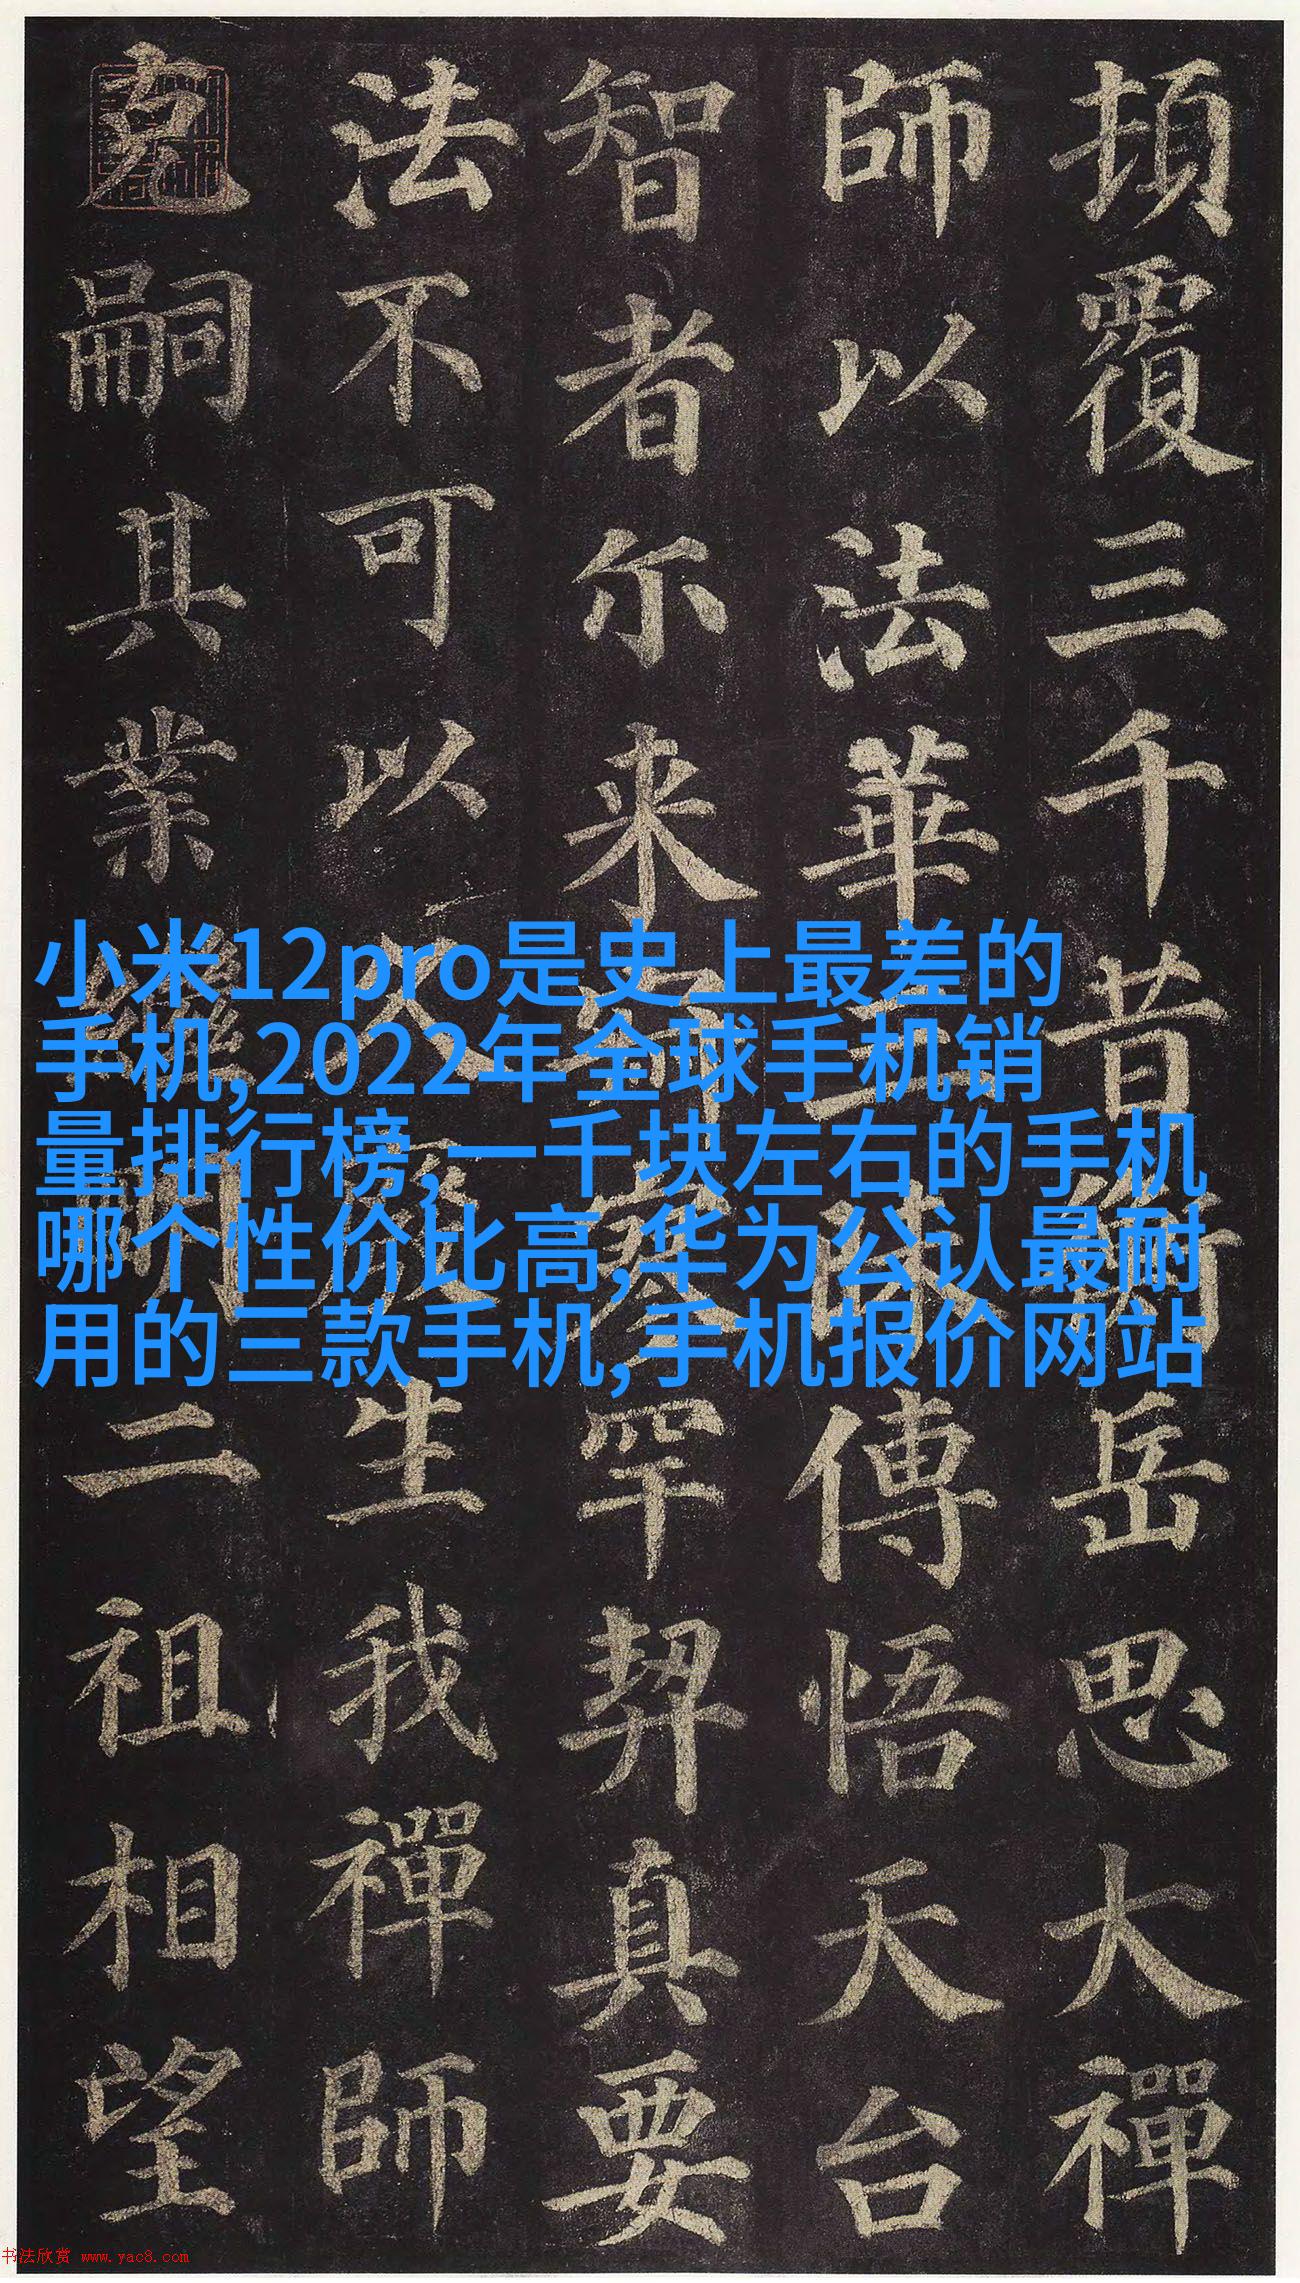 頓覆三千昔衡岳思大禪
師以法華三昧傳悟天台
智者尔来寂寥罕契真要
法不可以久廢生我禪師
克嗣其業繼明二祖相望
小米12pro是史上最差的
手机,2022年全球手机销
量排行榜,一千块左右的手机
哪个性价比高,华为公认最耐
用的三款手机,手机报价网站
书法欣赏 www.yac8.com